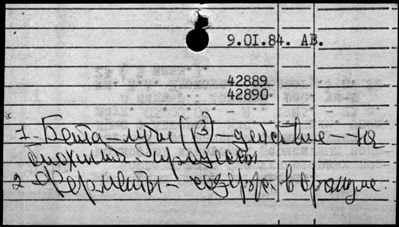 9.OI.84. АВ.
42889
42890
1. Бета-лучи (β) - действие - на
биохимич. процессы
2. Ферменты - содерж. в организме.